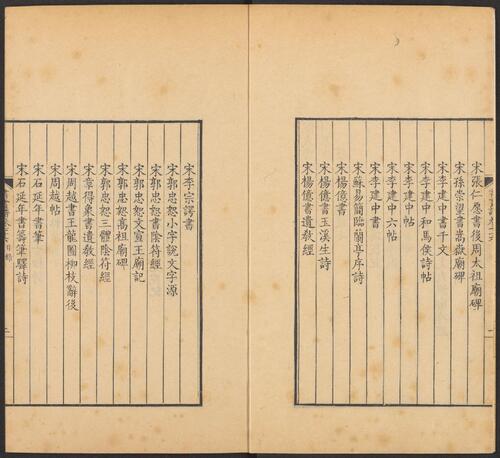 宋張仁愿書後周太祖廟碑
宋孫崇望書嵩嶽廟碑
宋李建中書千文
宋李建中和馬侯詩帖
宋李建中帖
宋李建中六帖
宋李建中書
宋蘇易簡臨蘭亭序詩
宋楊億書
宋楊億書玉溪生詩
宋楊億書遺敎經
宋李宗諤書
宋郭忠恕小字說文字源
宋郭忠恕書陰符經
宋郭忠恕文宣王廟記
宋郭忠恕高祖廟碑
宋郭忠恕三體陰符經
宋章得象書遺敎經
宋周越書王龍圖柳枝辭後
宋周越帖
宋石延年書筆
宋石延年書籌筆驛詩
二